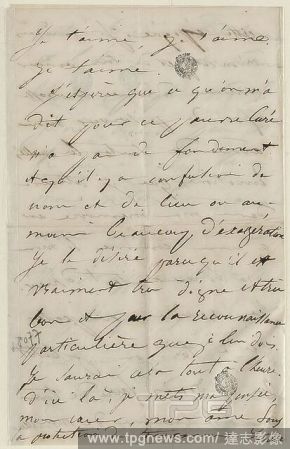 Je t'aime je t'aime.
Je t'aime.
J'espère que ce qu'on m'a
dit pour ce pauvre Curé
n'a pas de fondement
et qu'il y a confusion de
nom et de lieu ou au
moins beaucoup d'exagération
Je le désire parce qu'il est
vraiment très digne et très
bon et par la reconnaissance
particulière que je lui dois.
Je saurai cela tout à l'heure
D'ici là, je mets ma pensée,
mon cœur, mon âme sous
ta protection
www.tpgnews.com / 達志影像